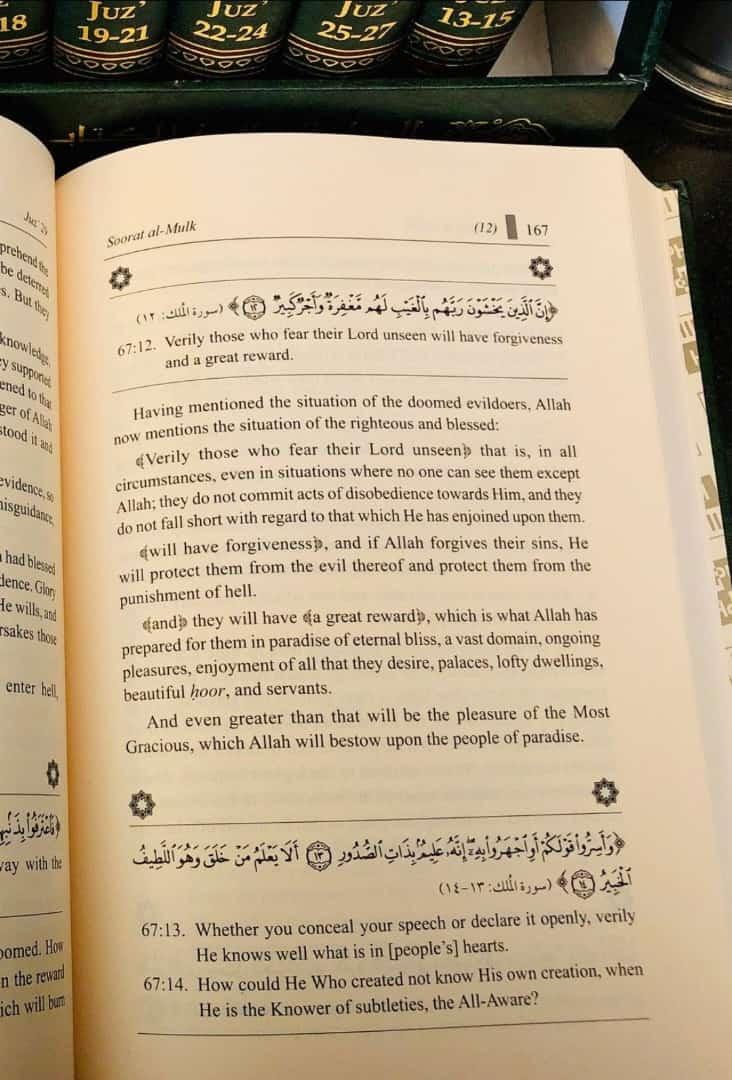 18
JUZ'
19-21
JUZ'
22-24
JUZ'
25-27
13-15
Juz' 29
prehend the
be deterred
s. But they
knowledge,
ey supported
ened to that
ger of Allah
stood it and
evidence, so
misguidance,
had blessed
dence. Glory
He wills, and
rsakes those
enter hell,
﴿فَٱعْتَرَفُوا۟ بِذَنۢبِهِ
way with the
oomed. How
n the reward
ich will burn
Soorat al-Mulk (12) 167
﴿إِنَّ ٱلَّذِينَ يَخْشَوْنَ رَبَّهُم بِٱلْغَيْبِ لَهُم مَّغْفِرَةٌ وَأَجْرٌ كَبِيرٌ ١٢﴾ (سورة الملك: ١٢)
67:12. Verily those who fear their Lord unseen will have forgiveness
and a great reward.
Having mentioned the situation of the doomed evildoers, Allah
now mentions the situation of the righteous and blessed:
﴾Verily those who fear their Lord unseen﴿ that is, in all
circumstances, even in situations where no one can see them except
Allah; they do not commit acts of disobedience towards Him, and they
do not fall short with regard to that which He has enjoined upon them.
﴾will have forgiveness﴿, and if Allah forgives their sins, He
will protect them from the evil thereof and protect them from the
punishment of hell.
﴾and﴿ they will have ﴾a great reward﴿, which is what Allah has
prepared for them in paradise of eternal bliss, a vast domain, ongoing
pleasures, enjoyment of all that they desire, palaces, lofty dwellings,
beautiful ḥoor, and servants.
And even greater than that will be the pleasure of the Most
Gracious, which Allah will bestow upon the people of paradise.
﴿وَأَسِرُّوا۟ قَوْلَكُمْ أَوِ ٱجْهَرُوا۟ بِهِۦٓ إِنَّهُۥ عَلِيمٌۢ بِذَاتِ ٱلصُّدُورِ ١٣ أَلَا يَعْلَمُ مَنْ خَلَقَ وَهُوَ ٱللَّطِيفُ
ٱلْخَبِيرُ ١٤﴾ (سورة الملك: ١٣-١٤)
67:13. Whether you conceal your speech or declare it openly, verily
He knows well what is in [people's] hearts.
67:14. How could He Who created not know His own creation, when
He is the Knower of subtleties, the All-Aware?